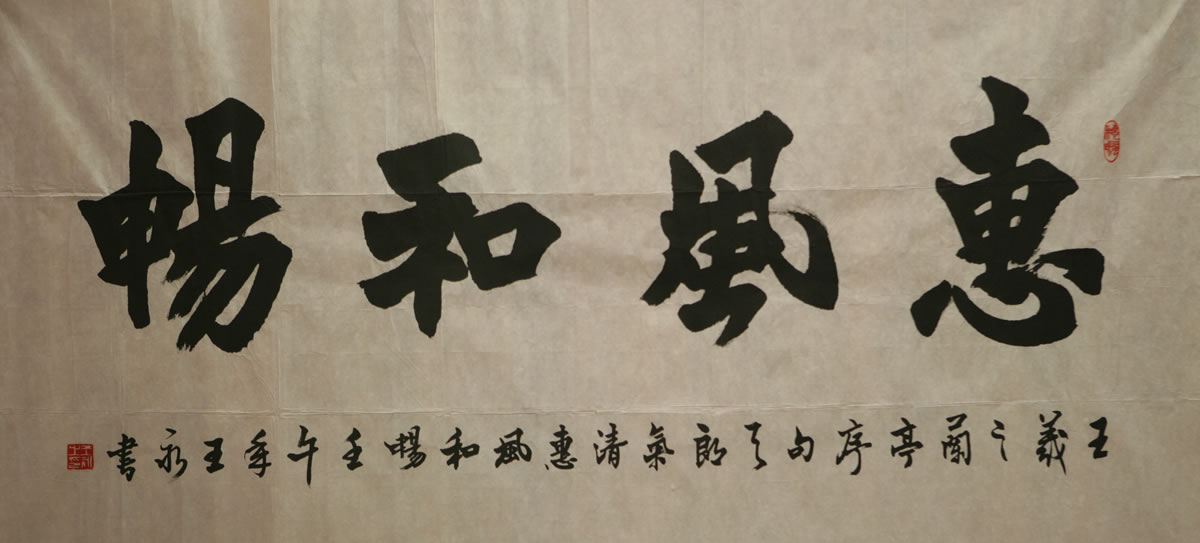 惠風和暢
王羲之蘭亭序句天朗氣清惠風和暢壬午年王永書